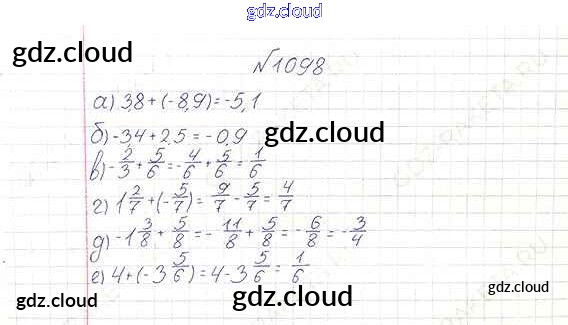 gdz.cloud
gdz.cloud
gdz.cloud
№1098
а) 3,8 + (-8,9) = -5,1
б) -3,4 + 2,5 = -0,9
gdz.cloud
в) -2/3 + 5/6 = -4/6 + 5/6 = 1/6
г) 1 2/7 + (-5/7) = 9/7 - 5/7 = 4/7
д) -1 3/8 + 5/8 = -11/8 + 5/8 = -6/8 = -3/4
е) 4 + (-3 5/6) = 4 - 3 5/6 = 1/6
gdz.cloud
gdz.cloud
gdz.cloud